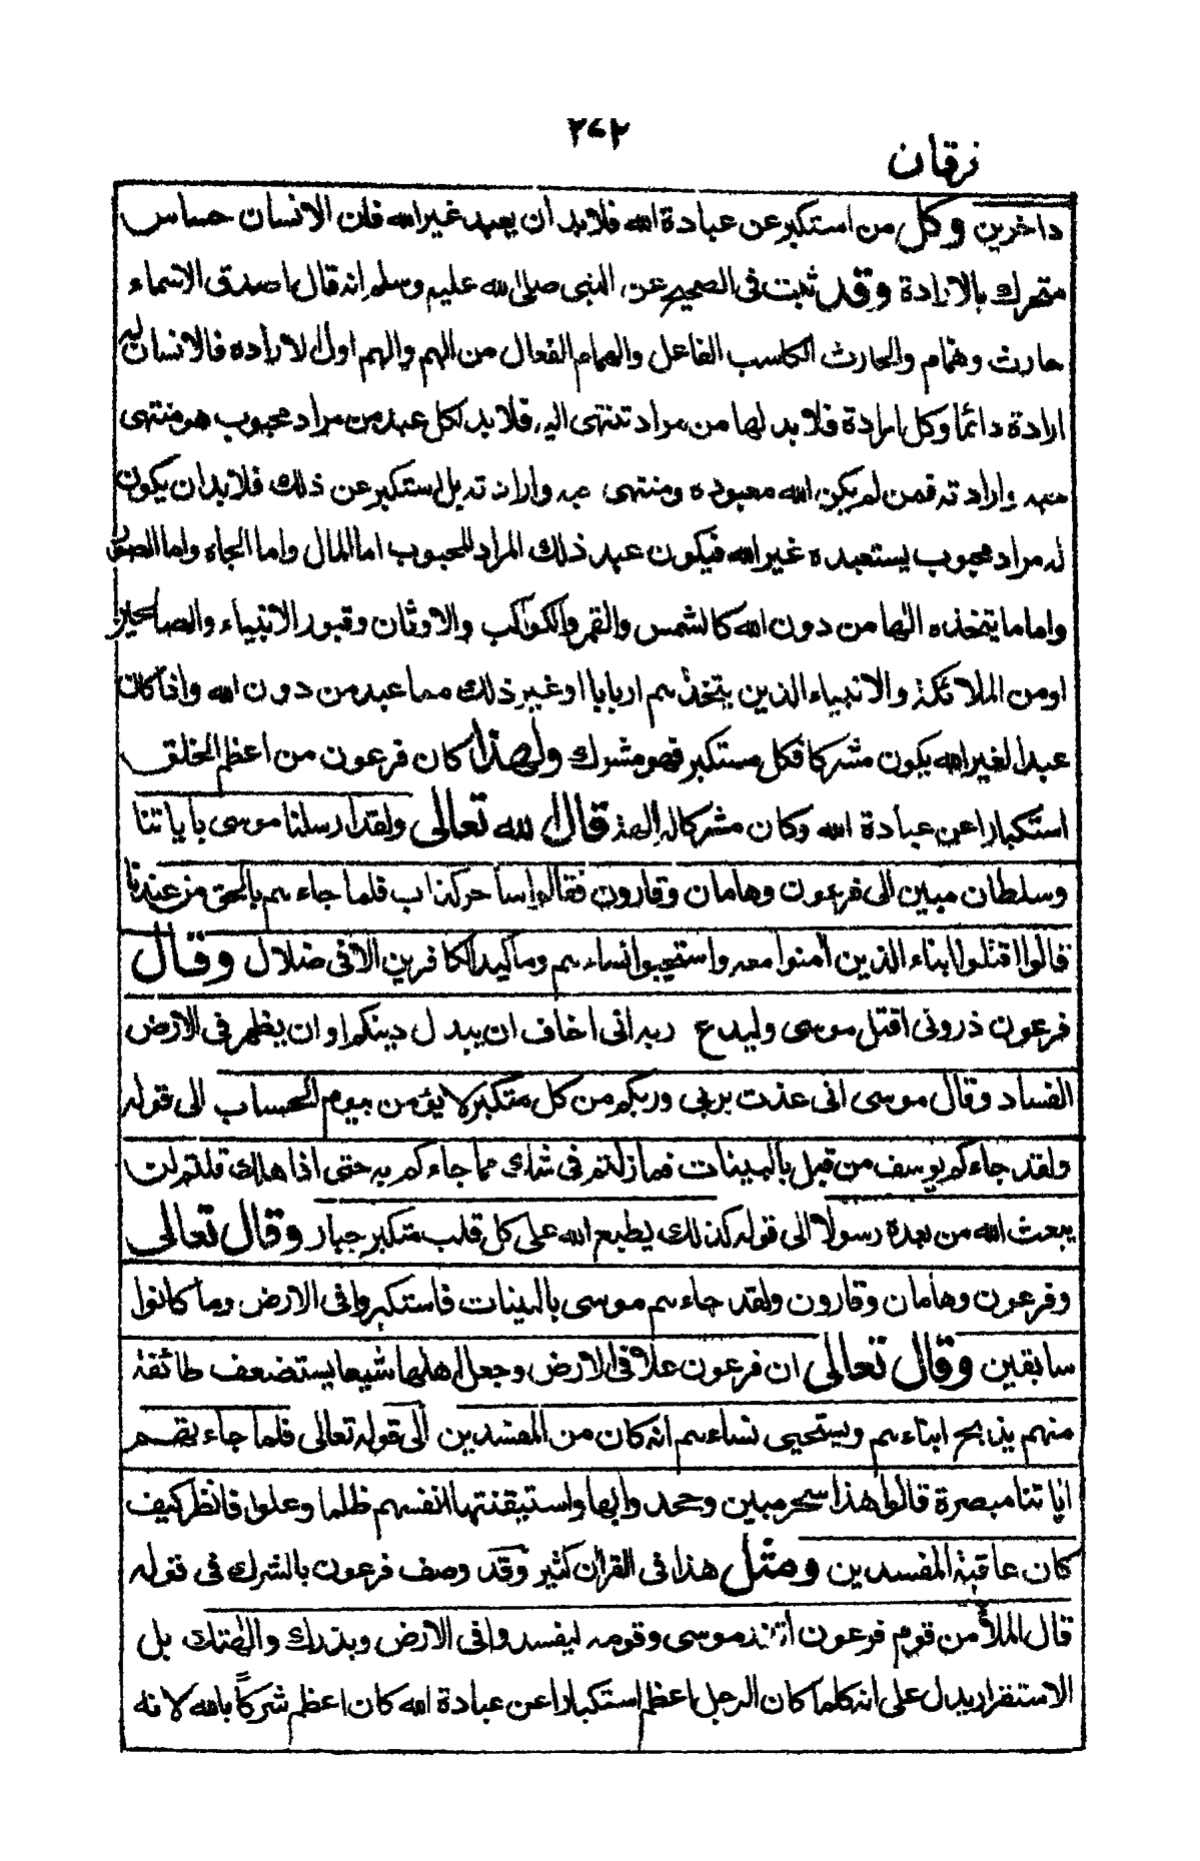 ٢٧٢
فرقان
داخرين وكل من استكبر عن عبادة الله فلا بد ان يعبد غير الله فان الانسان حساس
متحرك بالارادة وقد ثبت فى الصحيح عن النبى صلى الله عليه وسلم انه قال اصدق الاسماء
حارث وهمام والحارث الكاسب الفاعل والهمام الفعال من الهم والهم اول الارادة فالانسان له
ارادة دائما وكل ارادة فلا بد لها من مراد تنتهى اليه فلا بد لكل عبد من مراد محبوب هو منتهى
حبه وارادته فمن لم يكن الله معبوده ومنتهى حبه وارادته بل استكبر عن ذلك فلا بد ان يكون
له مراد محبوب يستعبده غير الله فيكون عبد ذلك المراد المحبوب اما المال واما الجاه واما الصور
واما ما يتخذه الها من دون الله كالشمس والقمر والكواكب والاوثان وقبور الانبياء والصالحين
او من الملائكة والانبياء الذين يتخذهم اربابا او غير ذلك مما عبد من دون الله واذا كان
عبدا لغير الله يكون مشركا فكل مستكبر فهو مشرك ولهذا كان فرعون من اعظم الخلق
استكبارا عن عبادة الله وكان مشركا له الهة قال الله تعالى ولقد ارسلنا موسى باياتنا
وسلطان مبين الى فرعون وهامان وقارون فقالوا ساحر كذاب فلما جاءهم بالحق من عندنا
قالوا اقتلوا ابناء الذين آمنوا معه واستحيوا نساءهم وما كيد الكافرين الا فى ضلال وقال
فرعون ذرونى اقتل موسى وليدع ربه انى اخاف ان يبدل دينكم او ان يظهر فى الارض
الفساد وقال موسى انى عذت بربى وربكم من كل متكبر لا يؤمن بيوم الحساب الى قوله
ولقد جاءكم يوسف من قبل بالبينات فما زلتم فى شك مما جاءكم به حتى اذا هلك قلتم لن
يبعث الله من بعده رسولا الى قوله كذلك يطبع الله على كل قلب متكبر جبار وقال تعالى
وفرعون وهامان وقارون ولقد جاءهم موسى بالبينات فاستكبروا فى الارض وما كانوا
سابقين وقال تعالى ان فرعون علا فى الارض وجعل اهلها شيعا يستضعف طائفة
منهم يذبح ابناءهم ويستحيى نساءهم انه كان من المفسدين الى قوله تعالى فلما جاءتهم
اياتنا مبصرة قالوا هذا سحر مبين وجحدوا بها واستيقنتها انفسهم ظلما وعلوا فانظر كيف
كان عاقبة المفسدين ومثل هذا فى القرآن كثير وقد وصف فرعون بالشرك فى قوله
قال الملأ من قوم فرعون اتذر موسى وقومه ليفسدوا فى الارض ويذرك والهتك بل
الاستقرار يدل على انه كلما كان الرجل اعظم استكبارا عن عبادة الله كان اعظم شركاً بالله لانه